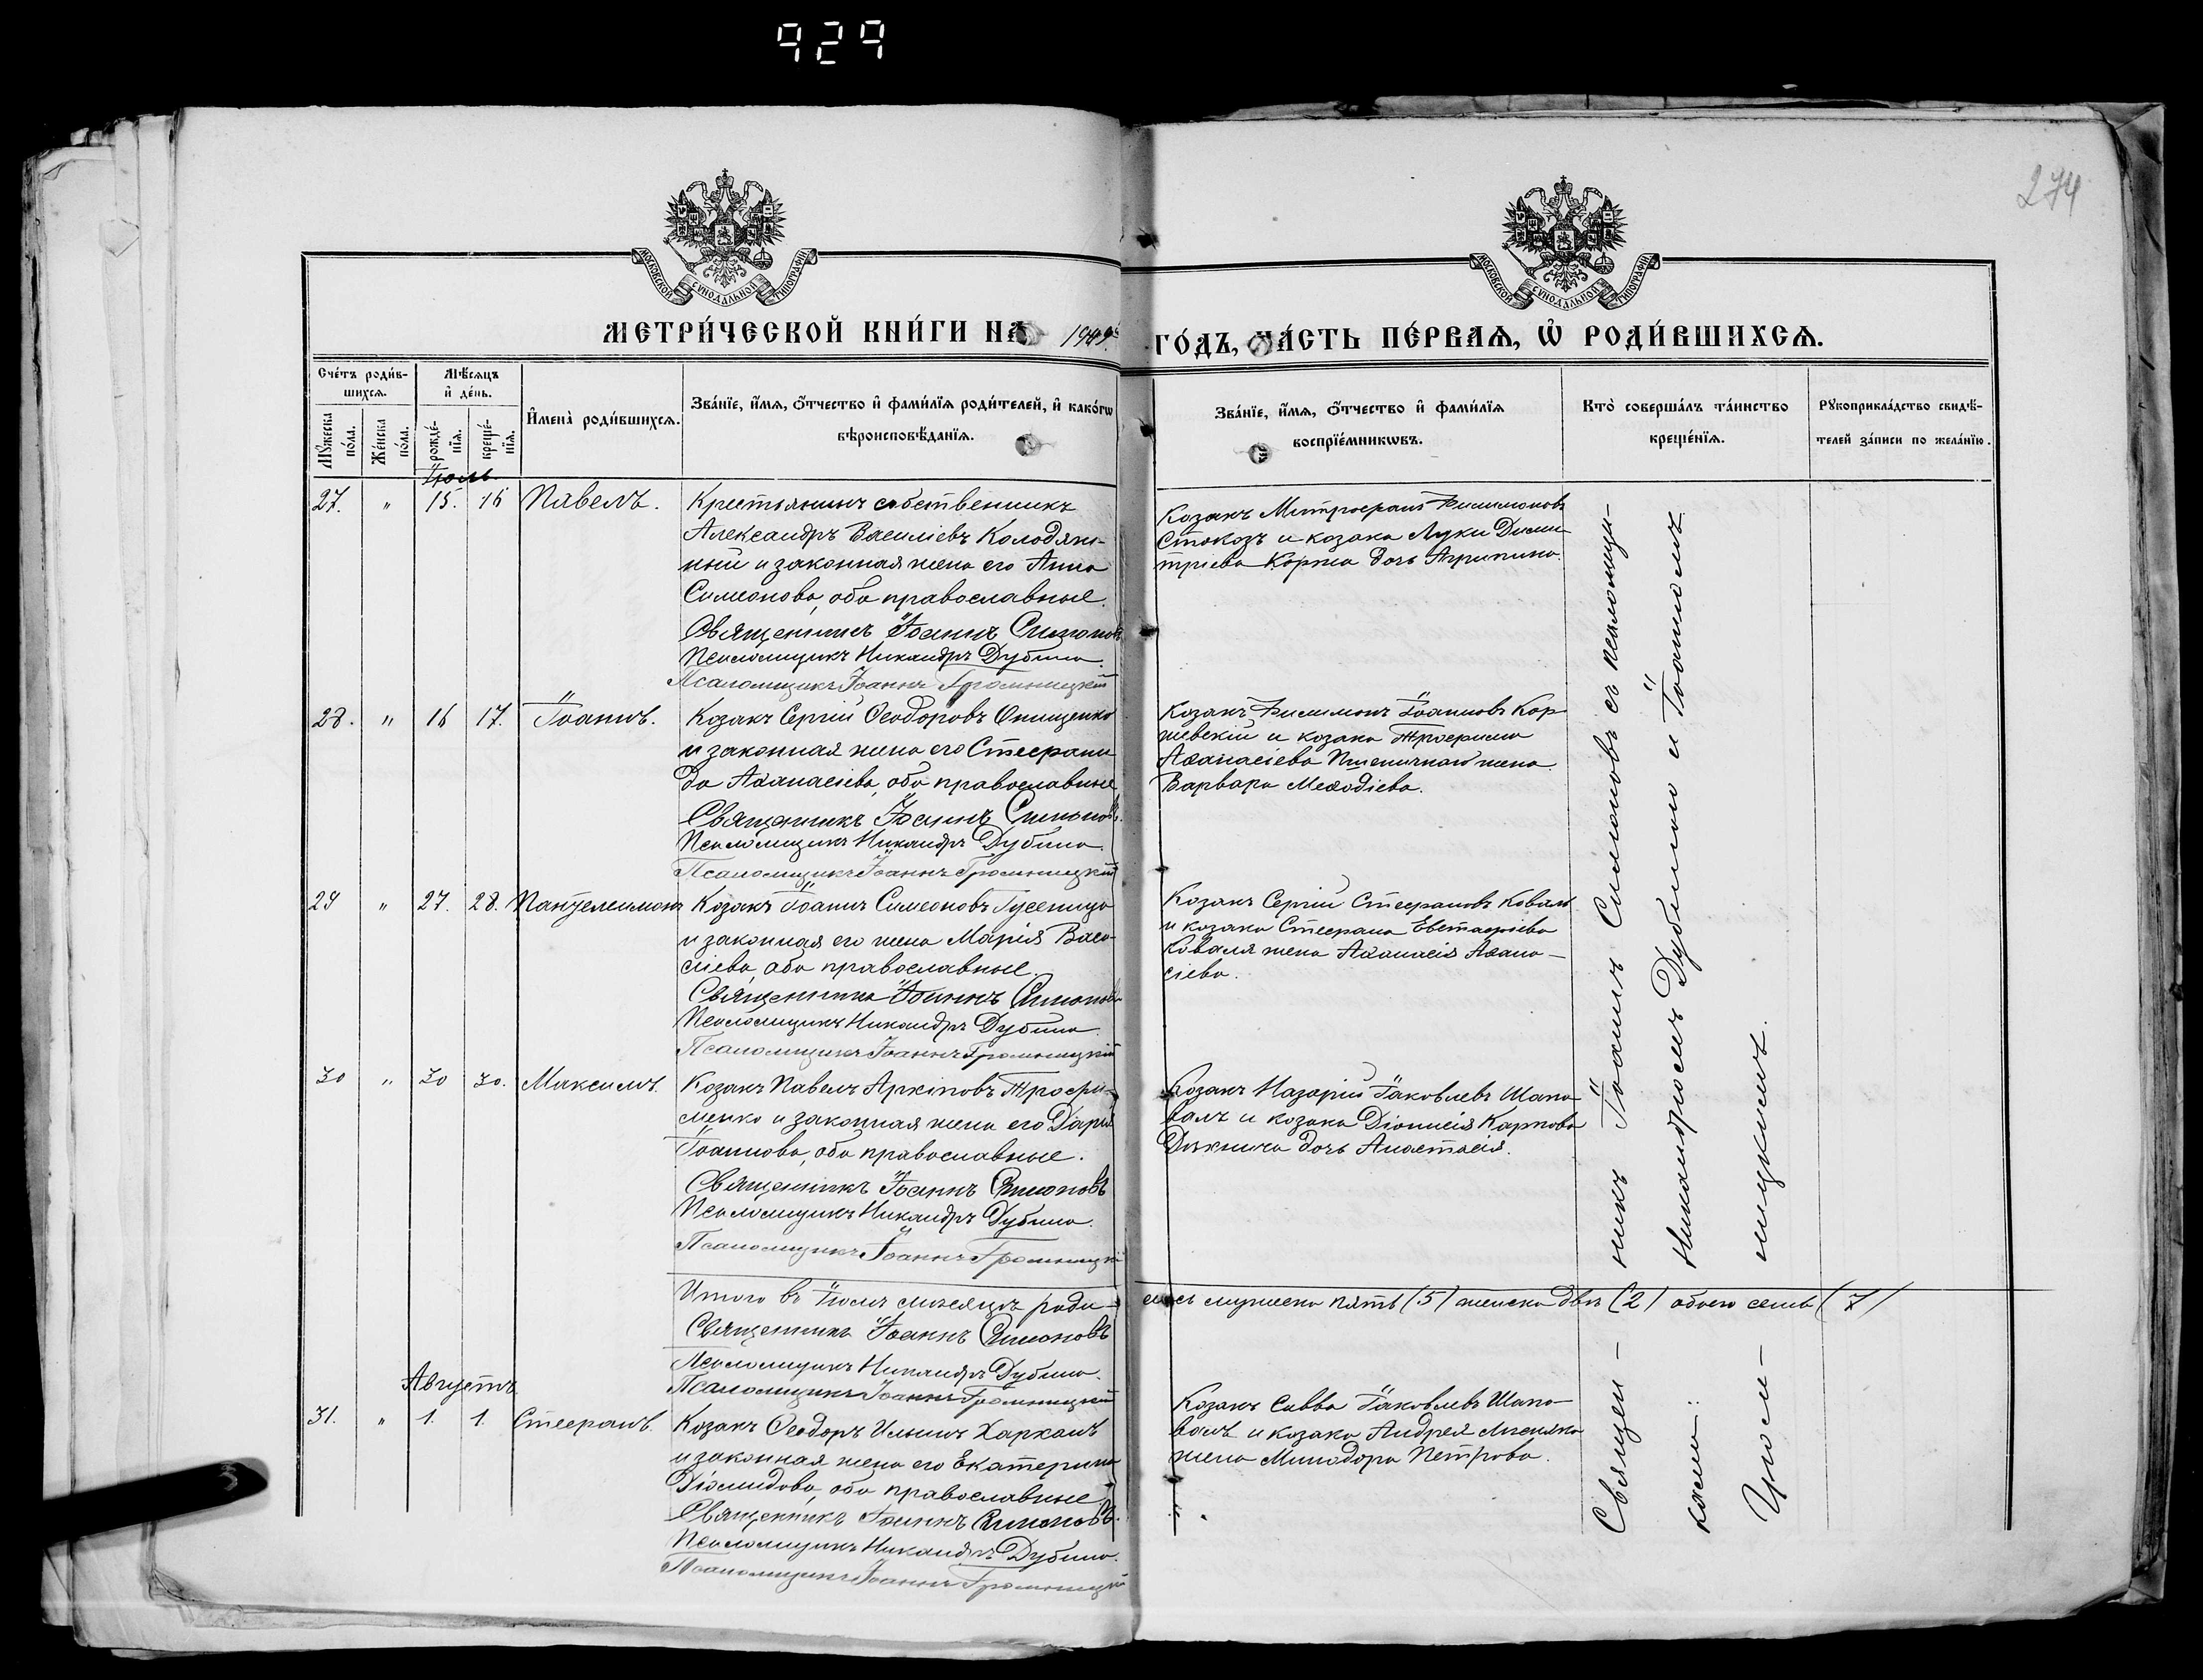 929
274
МОСКОВСКОЙ СѴНОДАЛЬНОЙ ТИПОГРАФІИ
МОСКОВСКОЙ СѴНОДАЛЬНОЙ ТИПОГРАФІИ
МЕТРИ́ЧЕСКОЙ КНИ́ГИ НА
ГО́ДЪ, ЧА́СТЬ ПЕ́РВАѦ, Ѡ҆ РОДИ́ВШИХСѦ.
Сче́тъ роди́в-
шихсѧ.
Мꙋжеска по́ла.
Же́нска по́ла.
Мѣ́сѧцъ
и҆ де́нь.
рожде́-нїѧ.
креще́-нїѧ.
И҆мена̀ роди́вшихсѧ.
Зва́нїе, и҆́мѧ, ѻ҆́тчество и҆ фами́лїѧ роди́телей, и҆ како́гѡ
вѣроисповѣ́данїѧ.
Зва́нїе, и҆́мѧ, ѻ҆́тчество и҆ фами́лїѧ
воспрїе́мникѡвъ.
Кто̀ соверша́лъ та́инство
креще́нїѧ.
Рꙋкоприкла́дство свидѣ́-
телей за́писи по жела́нїю.
Іюль
27. " 15. 16 Павелъ.
Крестьянинъ собственникъ
Александръ Василіевъ Колодяж-
ный и законная жена его Анна
Симеонова, оба православные.
Священникъ Іоаннъ Симоновъ
Псаломщикъ Никандръ Дубина.
Псаломщикъ Іоаннъ Громницкій
Козакъ Митрофанъ Филимоновъ
Стокозъ и козака Луки Дими-
тріева Коржа дочь Агрипина.
28. " 16 17. Іоаннъ.
Козакъ Сергій Ѳеодоровъ Онищенко
и законная жена его Стефани-
да Аѳанасіева, оба православные
Священникъ Іоаннъ Симоновъ.
Псаломщикъ Никандръ Дубина.
Псаломщикъ Іоаннъ Громницкій
Козакъ Филимонъ Іоанновъ Кор-
жевскій и козака Трофима
Аѳанасіева Пшеничнаго жена
Варвара Меѳодіева.
29 " 27. 28. Пантелеимонъ
Козакъ Іоаннъ Симеоновъ Гусеница
и законная его жена Марія Васи-
сіева, оба православные.
Священникъ Іоаннъ Симоновъ
Псаломщикъ Никандръ Дубина.
Псаломщикъ Іоаннъ Громницкій
Козакъ Сергій Стефановъ Коваль
и козака Стефана Евстафіева
Коваля жена Аѳанасія Аѳана-
сіева.
30 " 30 30. Максимъ.
Козакъ Павелъ Архіповъ Трофи-
менко и законная жена его Дарія
Іоаннова, оба православные.
Священникъ Іоаннъ Симоновъ
Псаломщикъ Никандръ Дубина.
Псаломщикъ Іоаннъ Громницкій
Козакъ Назарій Іаковлевъ Шапо-
валъ и козака Діонисія Карпова
дочь Анастасія.
Итого въ Іюлѣ мѣсяцѣ роди-
лось мужеска пять (5) женска двѣ (2) обоего семь (7)
Священникъ Іоаннъ Симоновъ
Псаломщикъ Никандръ Дубина.
Псаломщикъ Іоаннъ Громницкій
Августъ
31. " 1. 1. Стефанъ.
Козакъ Ѳеодоръ Ильинъ Харханъ
и законная жена его Екатерина
Діомидова, оба православные.
Священникъ Іоаннъ Симоновъ.
Псаломщикъ Никандръ Дубина.
Псаломщикъ Іоаннъ Громницкій
Козакъ Савва Іаковлевъ Шапо-
валъ и козака Андрея
жена Минодора Петрова.
Священ- никъ Іоаннъ Симоновъ съ псаломщи-
ками: Никандромъ Дубиною и Іоанномъ
ницкимъ.